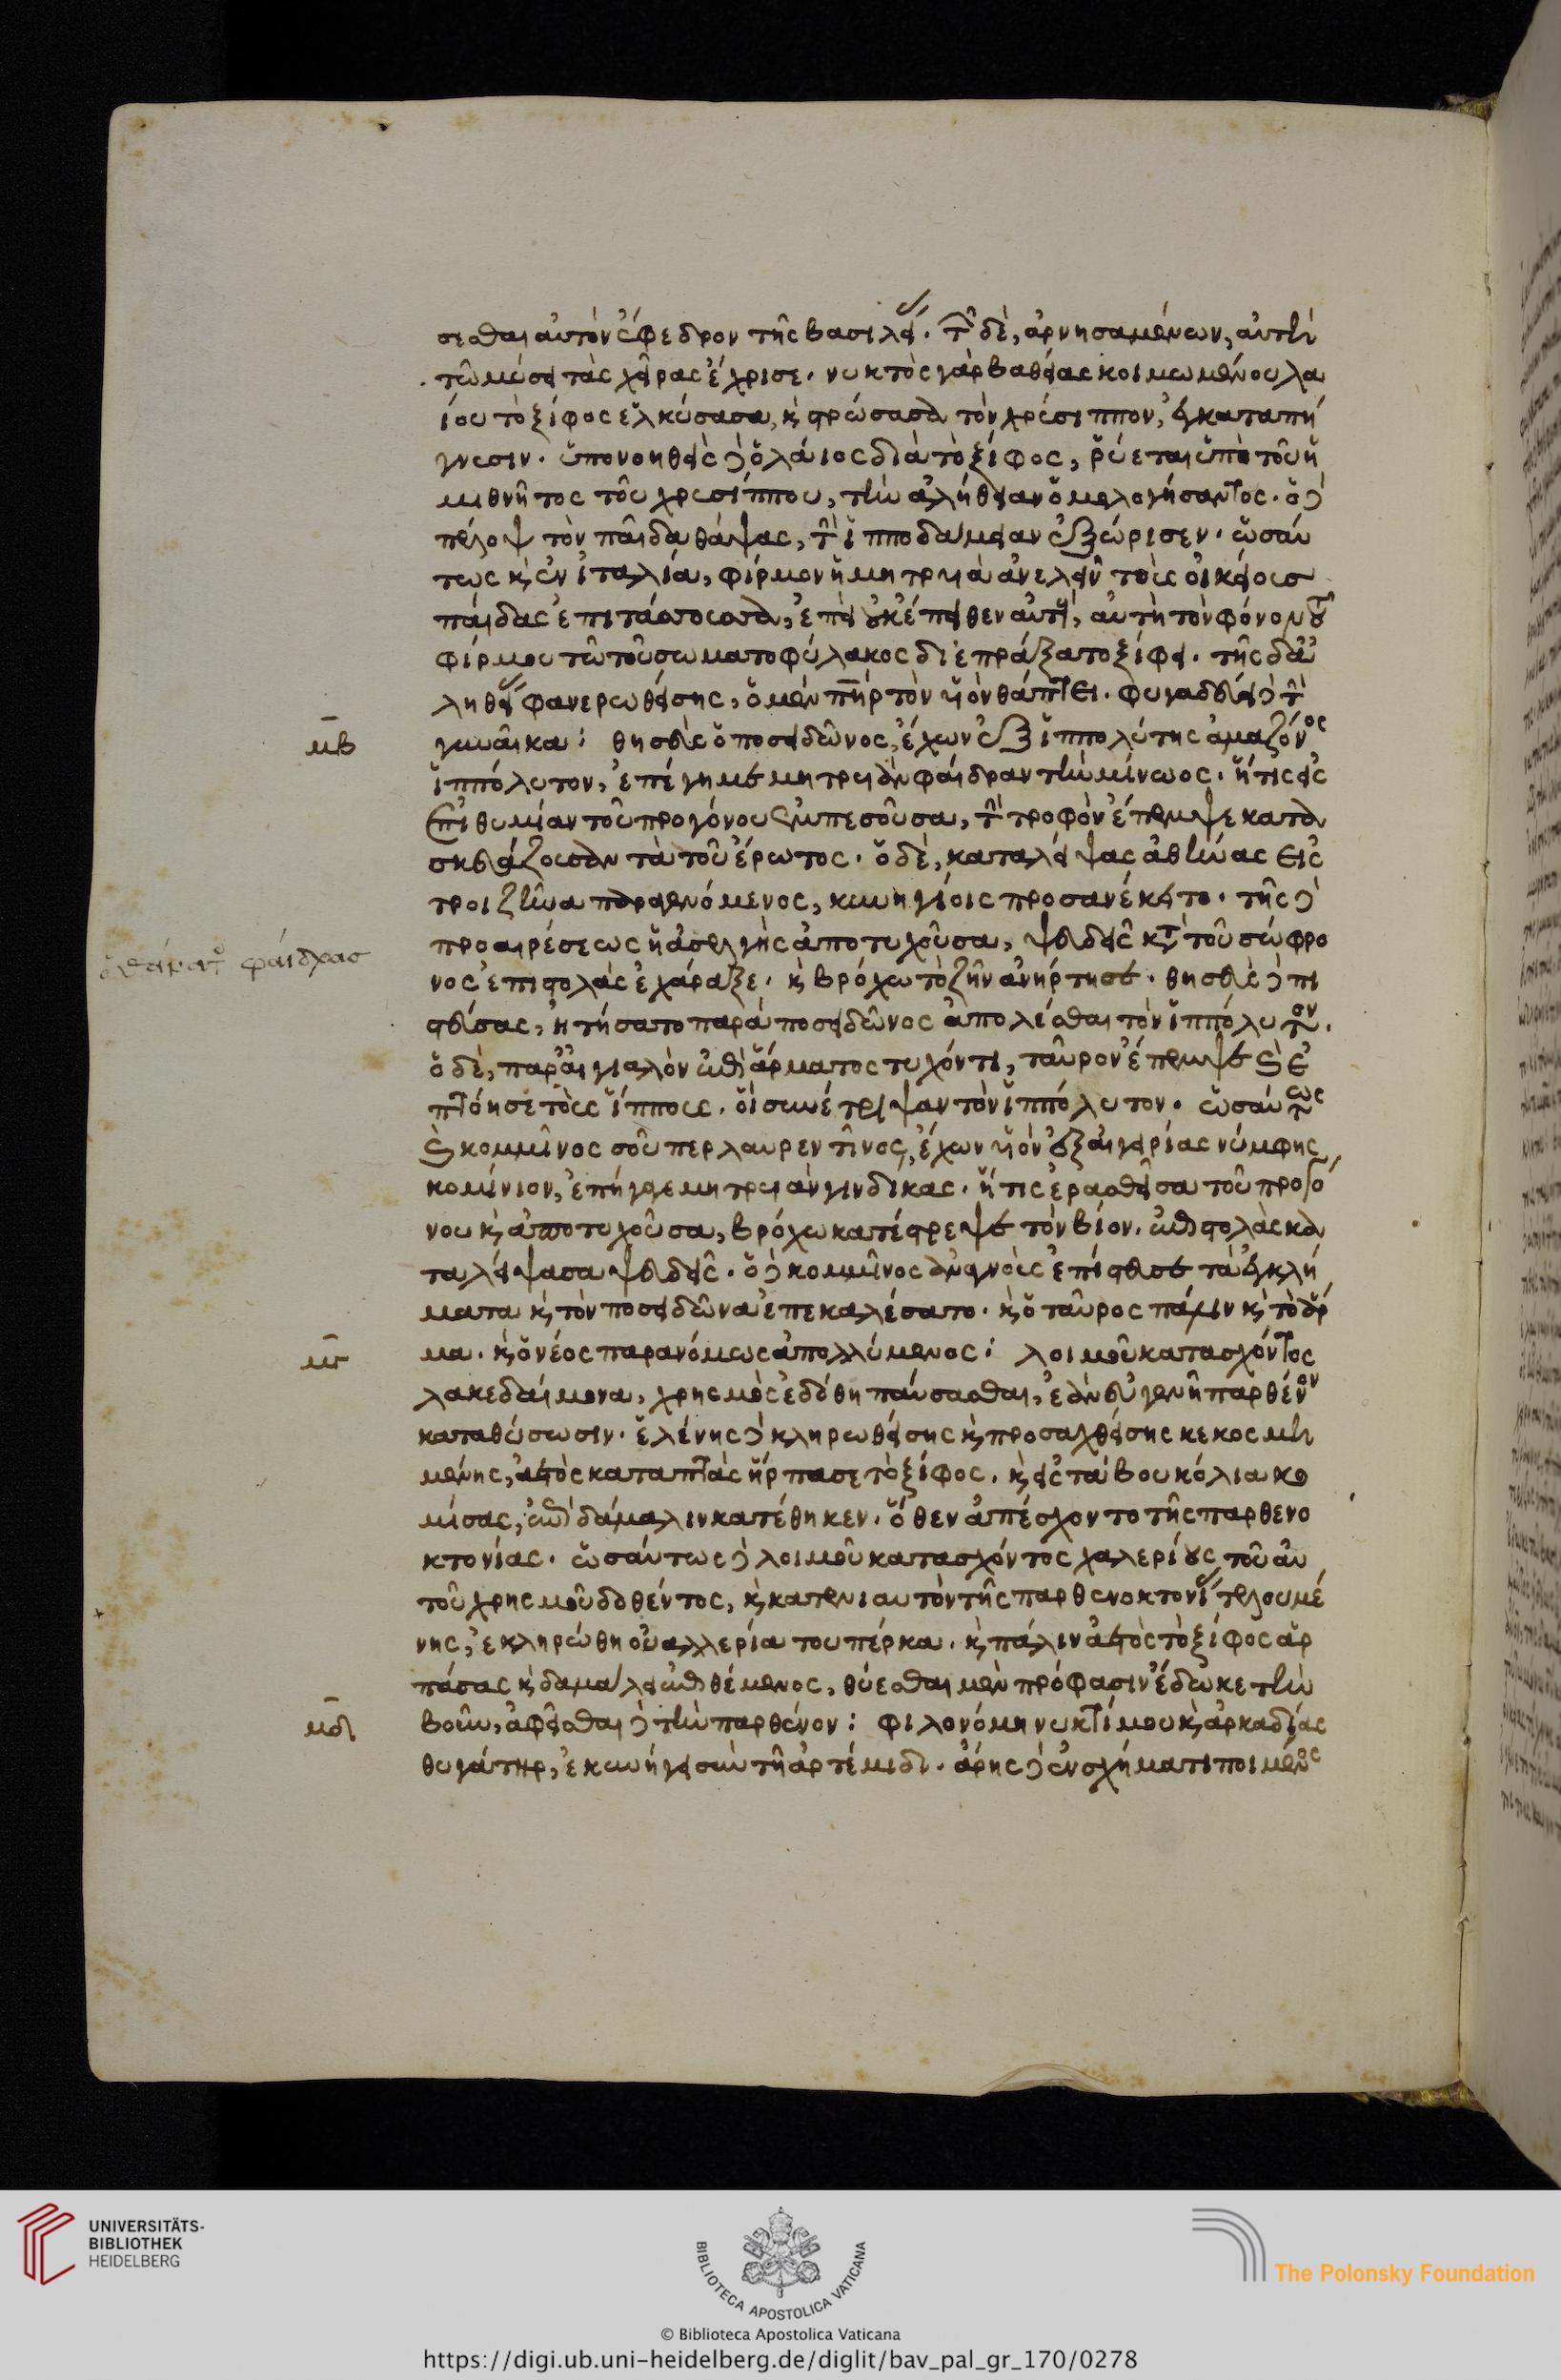 σεσθαι αὐτὸν ἔφεδρον τῆς βασιλεί. τ δὲ, ἀρνησαμένων, αὐτὴ
τῶ μύσει τὰς χεῖρας ἔχρισε. νυκτὸς γὰρ βαθείας κοιμωμένου λα
ίου τὸ ξίφος ἑλκύσασα, κ τρώσασα τὸν χρύσιππον, ἐγκαταπή
γνυσιν. ὑπονοηθεὶς δ ὁ λάιος διὰ τὸ ξίφος, ῥύεται ὑπὸ τοῦ ἡ
μιθνῆτος τοῦ χρυσίππου, τὴν ἀλήθειαν ὁμολογήσαντος. ὁ δ
πέλοψ τὸν παῖδα θάψας, τ ἱπποδάμειαν ἐξώρισεν. ὡσαύ
τως κ ἐν ἰταλία, φίρμον ἡ μητρυιὰ ἀνελεῖν τοὺς οἰκείους
παῖδας ἐπιτάσσουσα, ἐπεὶ οὐκ ἔπειθεν αὐτ, αὐτὴ τὸν φόνον τοῦ
φίρμου τῶ τοῦ σωματοφύλακος διεπράξατο ξίφει. τῆς δ ἀ
ληθεί φανερωθείσης, ὁ μὲν πηρ τὸν υἱὸν θάπτει. φυγαδεύει δ τ
μβ γυναῖκα: θησεὺς ὁ ποσειδῶνος, ἔχων ἐξ ἱππολύτης ἀμαζόνος
ἱππόλυτον, ἐπέγημε μητρυιὰν φαίδραν τὴν μίνωος. ἥτις εἰς
ἐπιθυμίαν τοῦ προγόνου ἐμπεσοῦσα, τ τροφὸν ἔπεμψε κατα
σκευάζουσαν τὰ τοῦ ἔρωτος. ὁ δὲ, καταλείψας ἀθήνας εἰς
τροιζῆνα παραγενόμενος, κυνηγίοις προσανέκειτο. τῆς δ
ὁ θάνατ φαίδρασ προαιρέσεως ἡ ἀσελγὴς ἀποτυχοῦσα, ψευδεῖς κτ τοῦ σώφρο
νος ἐπιστολὰς ἐχάραξε. κ βρόχω τὸ ζῆν ἀνήρτησε. θησεὺς δ πι
στεύσας, ἠτήσατο παρὰ ποσειδῶνος ἀπολέσθαι τὸν ἱππόλυτον.
ὁ δὲ, παρ' αἰγιαλὸν ἐπὶ ἅρματος τυχόντι, ταῦρον ἔπεμψε κ ἐ
πτόησε τοὺς ἵππους. οἱ συνέτριψαν τὸν ἱππόλυτον. ὡσαύτως
κ κομμῖνος σοῦπερ λαυρεντῖνος, ἔχων υἱὸν ἐξ αἰγερίας νύμφης
κομίνιον, ἐπήγαγε μητρυιὰν γινδίκας. ἥτις ἐρασθεῖσα τοῦ προγό
νου κ ἀποτυχοῦσα, βρόχω κατέστρεψε τὸν βίον. ἐπιστολὰς κα
ταλείψασα ψευδεῖς. ὁ δ κομμῖνος ἀναγνοὺς ἐπίστευσε τὰ ἐγκλή
ματα κ τὸν ποσειδῶνα ἐπεκαλέσατο. κ ὁ ταῦρος πάλιν κ τὸ ἅρ
μγ μα. κ ὁ νέος παρανόμως ἀπολλύμενος: λοιμοῦ κατασχόντος
λακεδαίμονα, χρησμὸς ἐδόθη παύσασθαι, ἐὰν εὐγενῆ παρθένον
καταθύσωσιν. ἑλένης δ κληρωθείσης κ προσαχθείσης κεκοσμη
μένης, ἀετὸς καταπτὰς ἥρπασε τὸ ξίφος. κ εἰς τὰ βουκόλια κο
μίσας, ἐπὶ δάμαλιν κατέθηκεν. ὅθεν ἀπέσχοντο τῆς παρθενο
κτονίας. ὡσαύτως δ λοιμοῦ κατασχόντος χαλερίους τοῦ αὐ
τοῦ χρησμοῦ δοθέντος, κ κατενιαυτὸν τῆς παρθενοκτονί τελουμέ
νης, ἐκληρώθη οὐαλλερία τουπέρκα. κ πάλιν ἀετὸς τὸ ξίφος ἁρ
πάσας κ δαμάλει ἐπιθέμενος, θύεσθαι μὲν πρόφασιν ἔδωκε τὴν
μδ βοῦν, ἀφεῖσθαι δ τὴν παρθένον: φιλονόμη νυκτίμου κ ἀρκαδίας
θυγάτηρ, ἐκυνήγει σὺν τῆ ἀρτέμιδι. ἄρης δ ἐν σχήματι ποιμένος
UNIVERSITÄTS-
BIBLIOTHEK
HEIDELBERG
BIBLIOTECA APOSTOLICA VATICANA
The Polonsky Foundation
© Biblioteca Apostolica Vaticana
https://digi.ub.uni-heidelberg.de/diglit/bav_pal_gr_170/0278